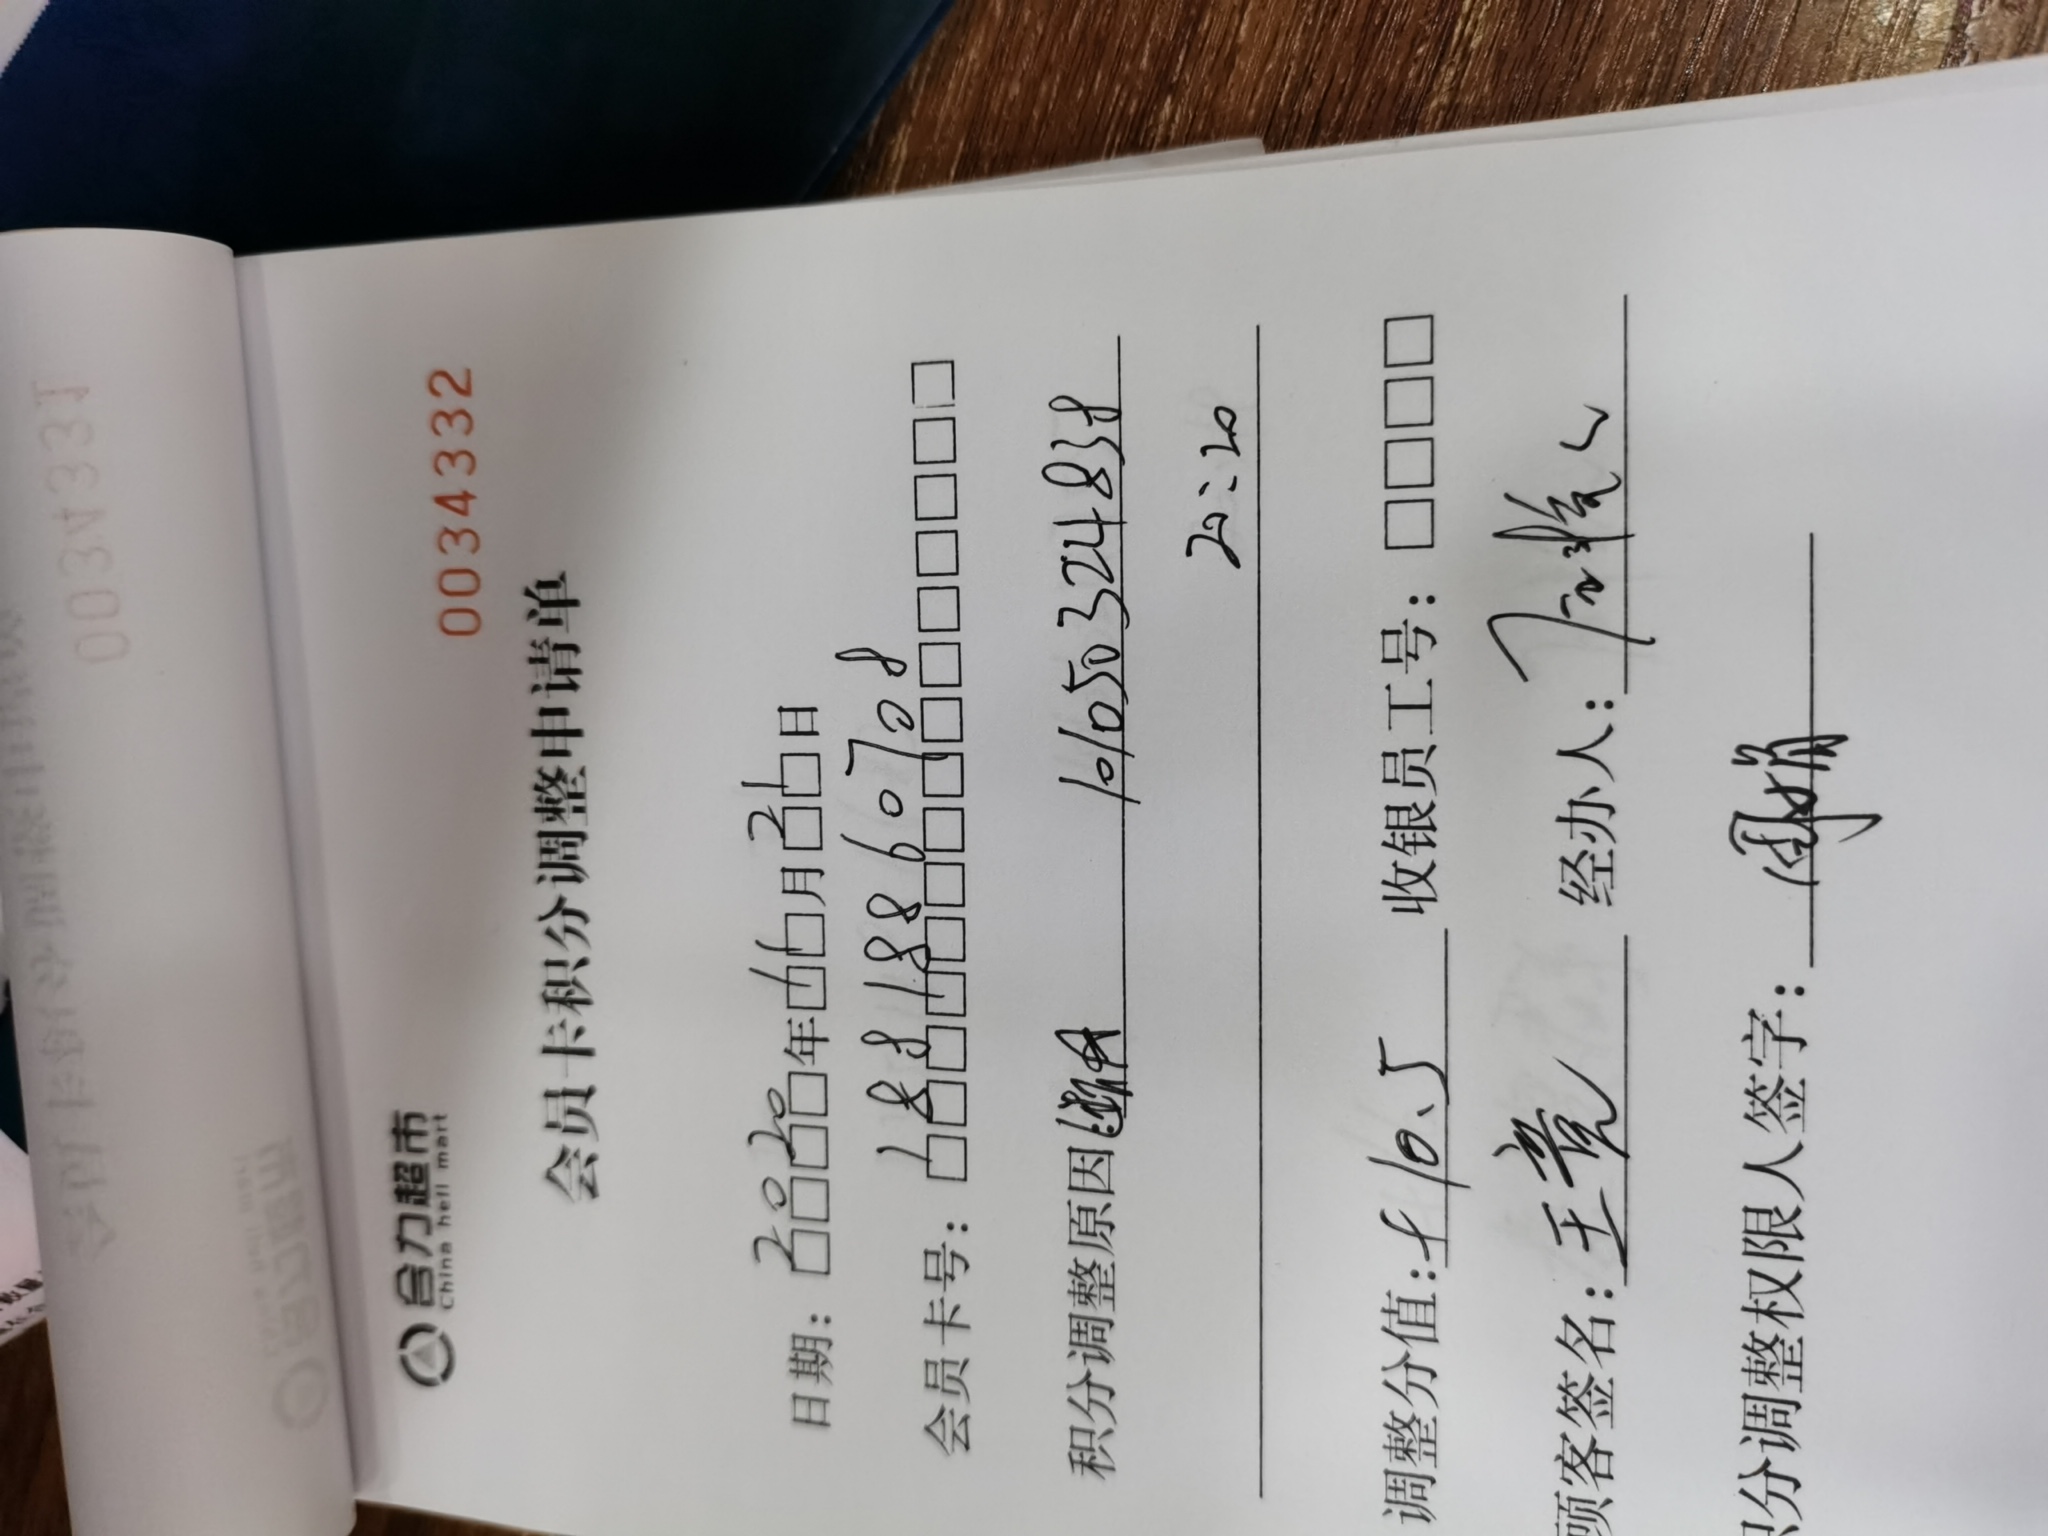 0034331
合力超市
China hell mart
0034332
会员卡积分调整申请单
日期：2020年11月21日
会员卡号：18818860708
积分调整原因 101050324838
20:20
调整分值：+10.5 收银员工号：□□□□
顾客签名：王竞 经办人：
积分调整权限人签字：周娟